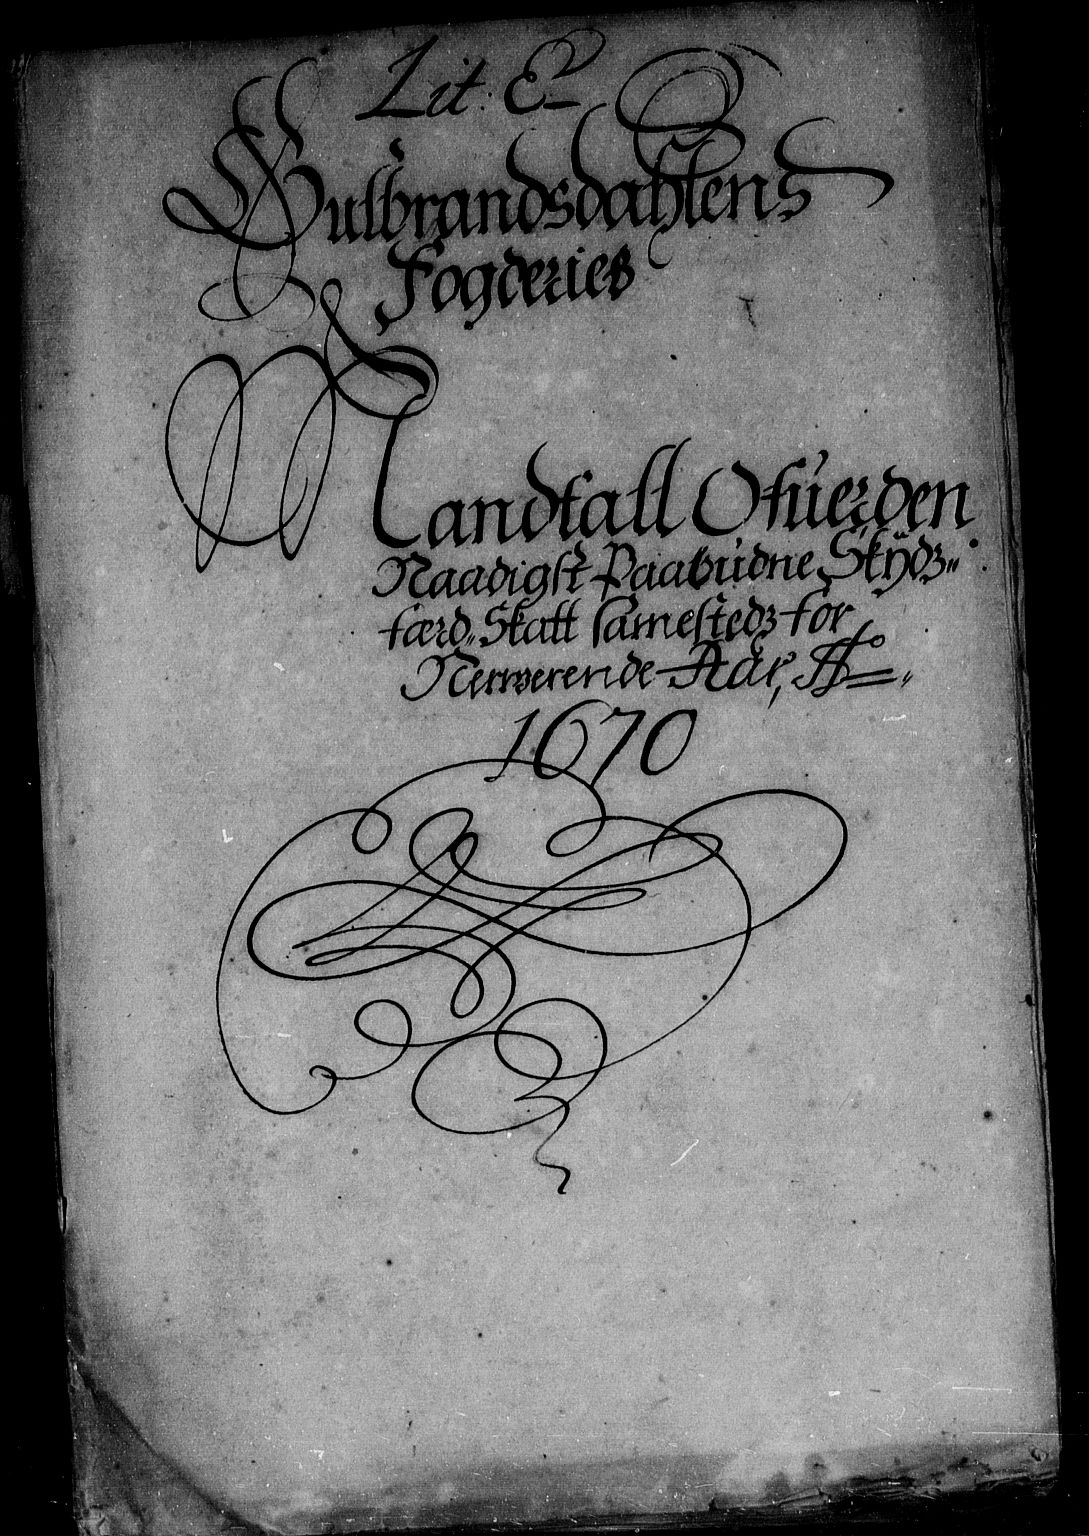 Lit: E
Gulbrandsdahlens
Fogderies
Mandtall Ofuer den
Naadigst Paabudne Skÿdz„
færd„ Skatt samestedz for
Nerwerende Aar, Ao
1670